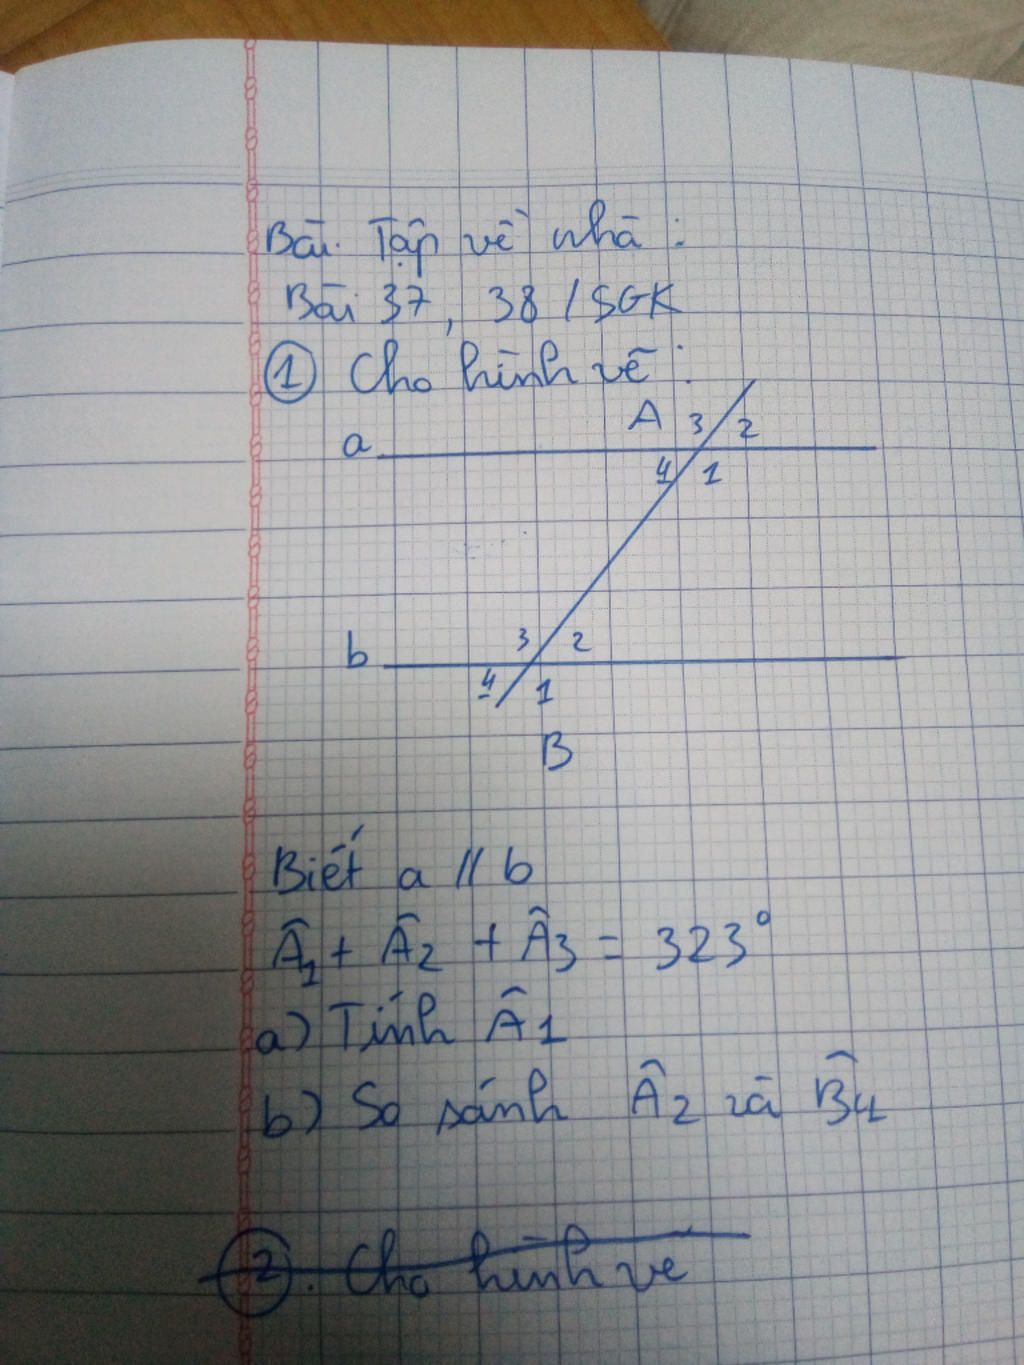 Bài Tập về nhà :
Bài 37, 38 / SGK
① Cho hình vẽ :
A 3 2
a
4 1
3 2
b
4 1
B
Biết a // b
Â1 + Â2 + Â3 = 323°
a) Tính Â1
b) So sánh Â2 và B̂4
②. Cho hình ve